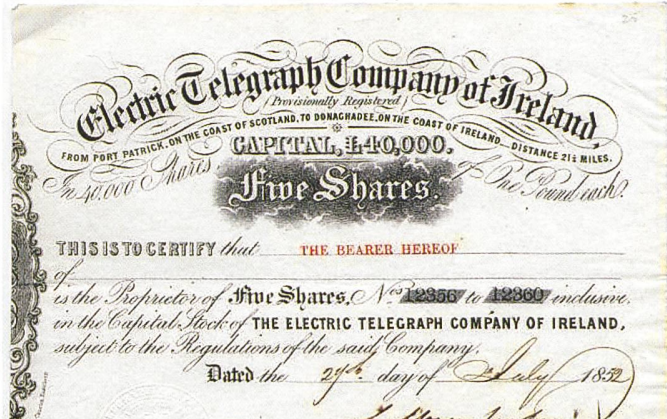 25
Electric Telegraph Company of Ireland,
(Provisionally Registered)
FROM PORT PATRICK, ON THE COAST OF SCOTLAND, TO DONAGHADEE, ON THE COAST OF IRELAND DISTANCE 21½ MILES.
CAPITAL, £40,000.
In 40,000 Shares of One Pound each.
Five Shares.
THIS IS TO CERTIFY that THE BEARER HEREOF
of
is the Proprietor of Five Shares, Nos 12356 to 12360 inclusive.
in the Capital Stock of THE ELECTRIC TELEGRAPH COMPANY OF IRELAND,
subject to the Regulations of the said Company.
Dated the 29th day of July 1852